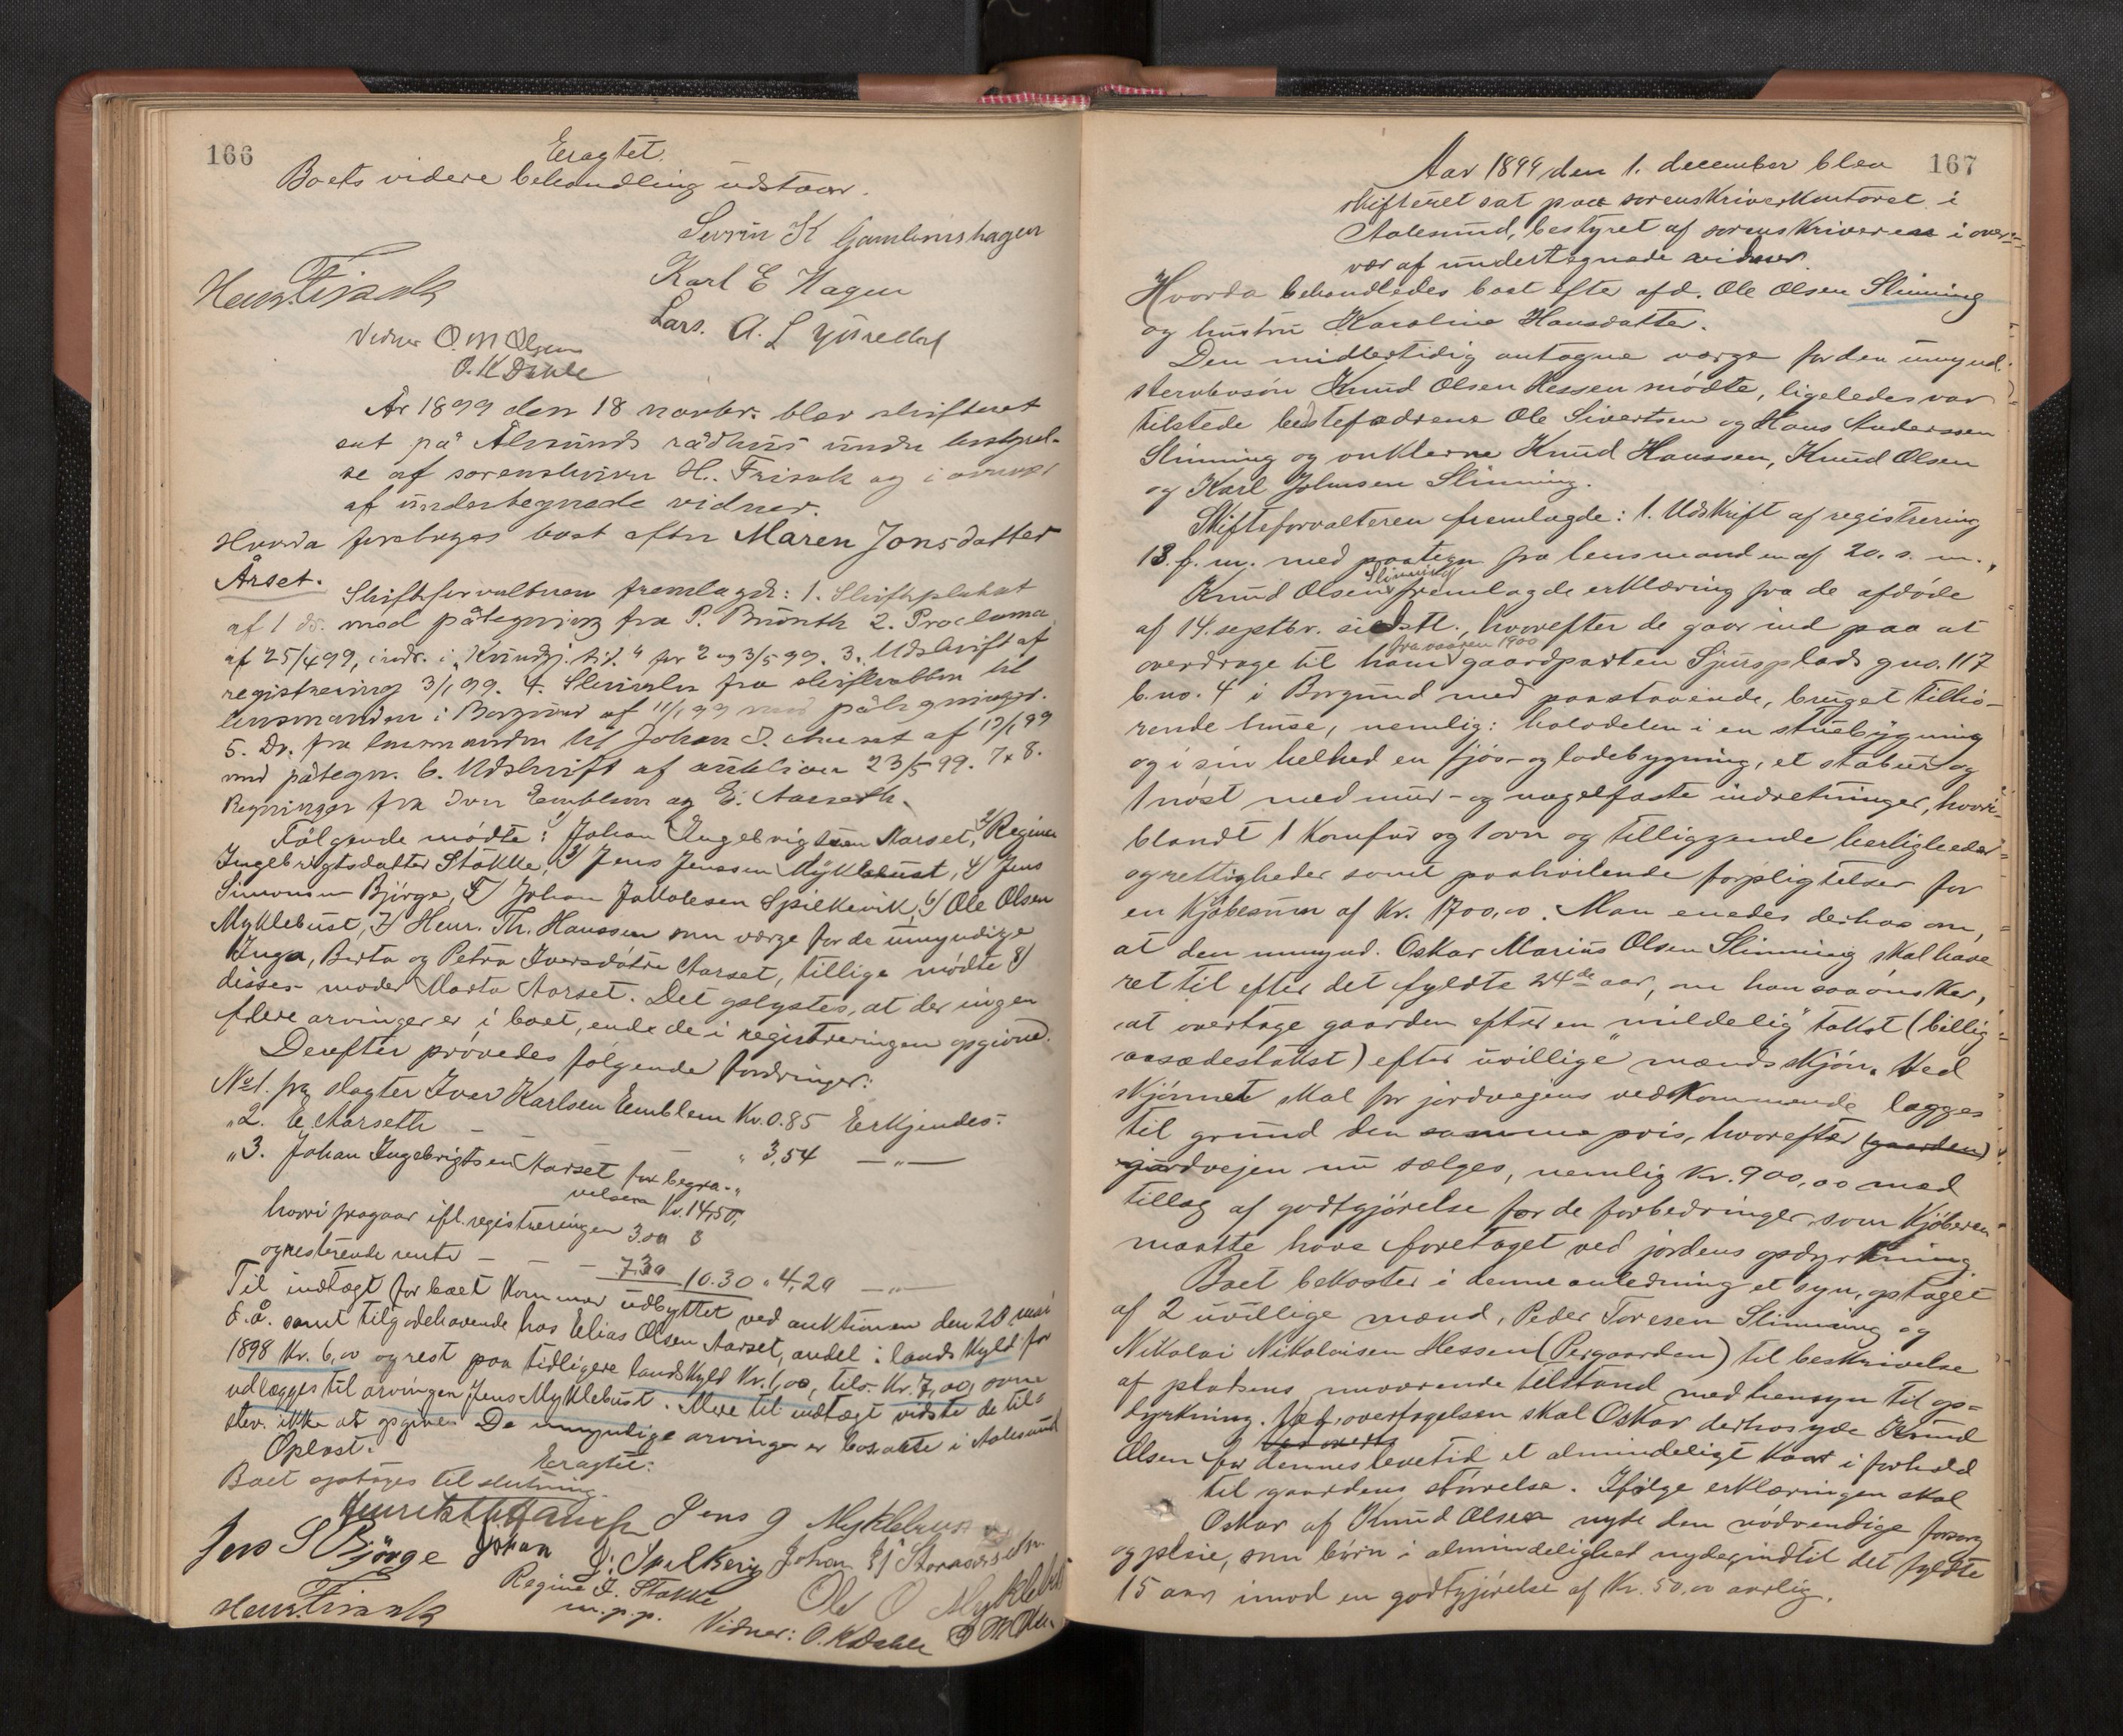 166
Eragtet.
Boets videre behandling udstaar.
Karl E Hagen
Lars. A.
Vidner O. M Olsen
O. K Dahle
År 1899 den 18 novbr. blev skifteret
sat på Ålesunds rådhus under bestyrel-
se af sorenskriver H. Frisak og i overvær
af undertegnede vidner.
Hvorda foretoges boet efter Maren Jonsdatter
Årset.
Skifteforvalteren fremlagde: 1. Skifteplakat
af 1 ds. med påtegning fra P. Brünth 2. Proclama
af 25/4 99, indr. i „Kundgj. tid." for 2 og 3/5 99. 3. Udskrift af
registrering 3/1 99. 4. Skrivelse fra skifteretten til
lensmanden i Borgund af 11/1 99 med påtegninger.
5. Do. fra lensmanden til Johan I. Aarset af 12/1 99
med påtegn. 6. Udskrift af auktion 23/5 99. 7 & 8.
Regninger fra Iver Emblem og E. Aarseth.
Følgende mødte: 1) Johan Ingebrigtsen Aarset, 2) Regine
Ingebrigtsdatter Stokke, 3) Jens Jenssen Myklebust, 4) Jens
Simonsen Bjørge, 5) Johan Jakobsen Spilkevik, 6) Ole Olsen
Myklebust, 7) Henr. Th. Hanssen som værge for de umyndige
Inga, Berta og Petra Iversdøtre Aarset, tillige mødte 8)
disses moder Marta Aarset. Det oplystes, at der ingen
flere arvinger er i boet, end de i registreringen opgivne.
Derefter prøvedes følgende fordringer:
No 1. fra slagter Iver Karlsen Emblem Kr. 0.85 Erkjendes.
„ 2. E. Aarseth — — „ 3,54 — „ —
„ 3. Johan Ingebrigtsen Aarset for begra-
velsen Kr. 14,50,
hvori fragaar ifl. registreringen 3.00
og resterende rente — — 7.30 10.30 „ 4,20 — „ —
Til indtægt for boet kommer udbyttet ved auktionen den 20 mai
d. å. samt tilgodehavende hos Elias Olsen Aarset, andel i landskyld for
1898 Kr. 6,00 og rest paa tidligere landskyld Kr. 1,00, tils. Kr. 7,00, som
udlægges til arvingen Jens Myklebust. Mere til indtægt vidste de til-
stev. ikke at opgive. De umyndige arvinger er bosatte i Aalesund
Oplæst.
Eragtet:
Boet optages til slutning.
Jens J Myklebust
Jens S Bjørge Johan J. Spilkevig
Regine I. Stokke
m.p.p.
Ole O Myklebust
Vidner: O. K Dahle O M Olsen
167
Aar 1899 den 1. december blev
skifteret sat paa sorenskriverkontoret i
Aalesund, bestyret af sorenskriveren i over-
vær af undertegnede vidner.
Hvorda behandledes boet efter afd. Ole Olsen Slinning
og hustru Karoline Hansdatter.
Den midlertidig antagne værge for den umynd.
stervbosøn Knud Olsen Hessen mødte, ligeledes var
tilstede bedstefædrene Ole Sivertsen og Hans Anderssen
Slinning og onklerne Knud Hanssen, Knud Olsen
og Karl Johnsen Slinning.
Skifteforvalteren fremlagde: 1. Udskrift af registrering
13. f. m. med paategn. fra lensmanden af 20. s. m.,
Knud Olsen Slinning fremlagde erklæring fra de afdøde
af 14. septbr. sidstl., hvorefter de gaar ind paa at
overdrage til ham fra vaaren 1900 gaardparten Sjursplads gno. 117
b. no. 4 i Borgund med paastaaende, bruget tilhø-
rende huse, nemlig: halvdelen i en stuebygning
og i sin helhed en fjøs- og ladebygning, et stabur og
1 nøst med mur- og nagelfaste indretninger, hvori-
blandt 1 Komfur og 1 ovn og tilliggende herligheder
og rettigheder samt paahvilende forpligtelser for
en Kjøbesum af Kr. 1700,00. Man enedes derhos om,
at den umynd. Oskar Marius Olsen Slinning skal have
ret til efter det fyldte 24de aar, om han saa ønsker,
at overtage gaarden efter en „mildelig" takst (billig
aasædestakst) efter uvillige mænds skjøn. Ved
skjønnet skal for jordvejens vedkommende lægges
til grund den samme pris, hvorefter (gaarden)
jordvejen nu sælges, nemlig Kr. 900,00 med
tillæg af godtgjørelse for de forbedringer, som Kjøberen
maatte have foretaget ved jordens opdyrkning.
Boet bekoster i denne anledning et syn, optaget
af 2 uvillige mænd, Peder Toresen Slinning og
Nikolai Nikolaisen Hessen (Pergaarden) til beskrivelse
af pladsens nuværende tilstand med hensyn til op-
dyrkning. Ved overtagelsen skal Oskar derhos yde Knud
Olsen for dennes levetid et almindeligt kaar i forhold
til gaardens størrelse. Ifølge erklæringen skal
Oskar af Knud Olsen nyde den nødvendige forsorg
og pleie, som børn i almindelighed nyder, indtil det fyldte
15 aar imod en godtgjørelse af Kr. 50,00 aarlig.